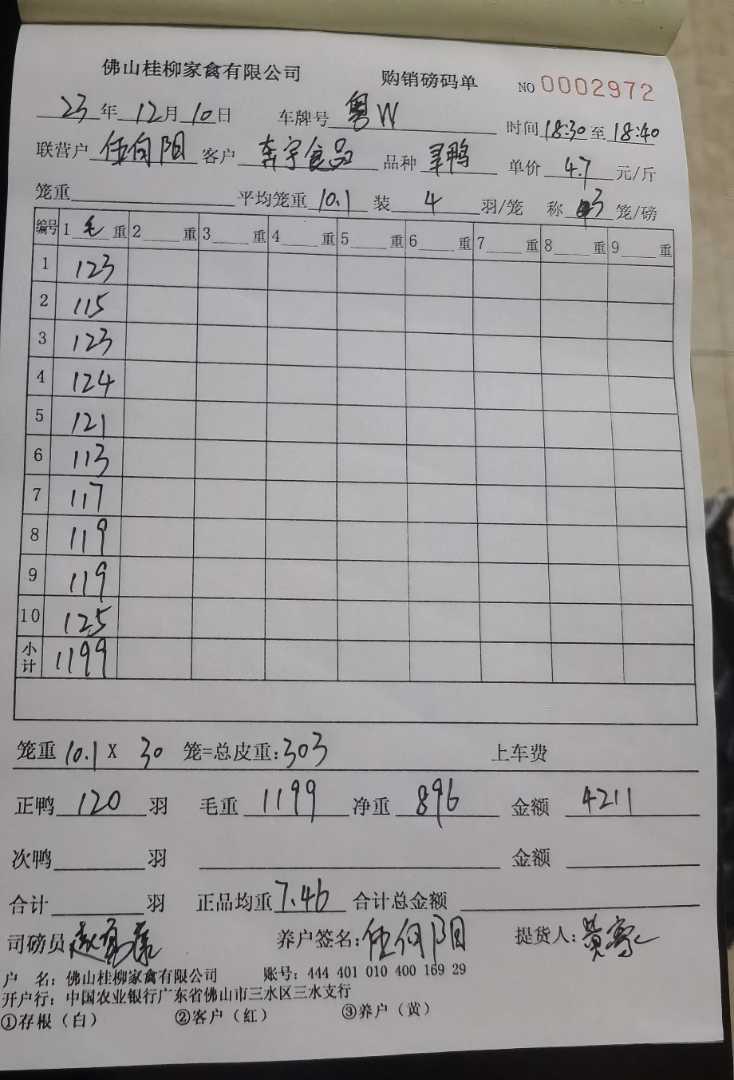 佛山桂柳家禽有限公司 购销磅码单 NO 0002972
23年12月10日 车牌号 粤W 时间18:30至18:40
联营户 任向阳 客户 奔宇食品 品种 鸭 单价 4.7 元/斤
笼重 平均笼重 10.1 装 4 羽/笼 称 3 笼/磅
编号 1 毛 重 2 重 3 重 4 重 5 重 6 重 7 重 8 重 9 重
1 123
2 115
3 123
4 124
5 121
6 113
7 117
8 119
9 119
10 125
小计 1199
笼重 10.1 X 30 笼=总皮重:303 上车费
正鸭 120 羽 毛重 1199 净重 896 金额 4211
次鸭 羽 金额
合计 羽 正品均重 7.46 合计总金额
司磅员 养户签名: 任向阳 提货人:
户 名: 佛山桂柳家禽有限公司 账号: 444 401 010 400 169 29
开户行: 中国农业银行广东省佛山市三水区三水支行
①存根（白） ②客户（红） ③养户（黄）